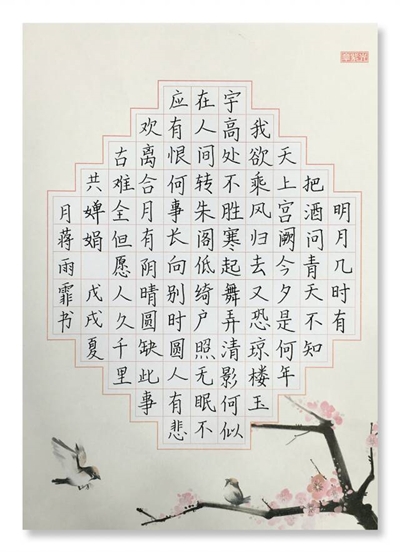 明月几时有
把酒问青天不知
天上宫阙今夕是何年
我欲乘风归去又恐琼楼玉
宇高处不胜寒起舞弄清影何似
在人间转朱阁低绮户照无眠不
应有恨何事长向别时圆人有悲
欢离合月有阴晴圆缺此事
古难全但愿人久千里
共婵娟 戊戌夏
月蒋雨霏书